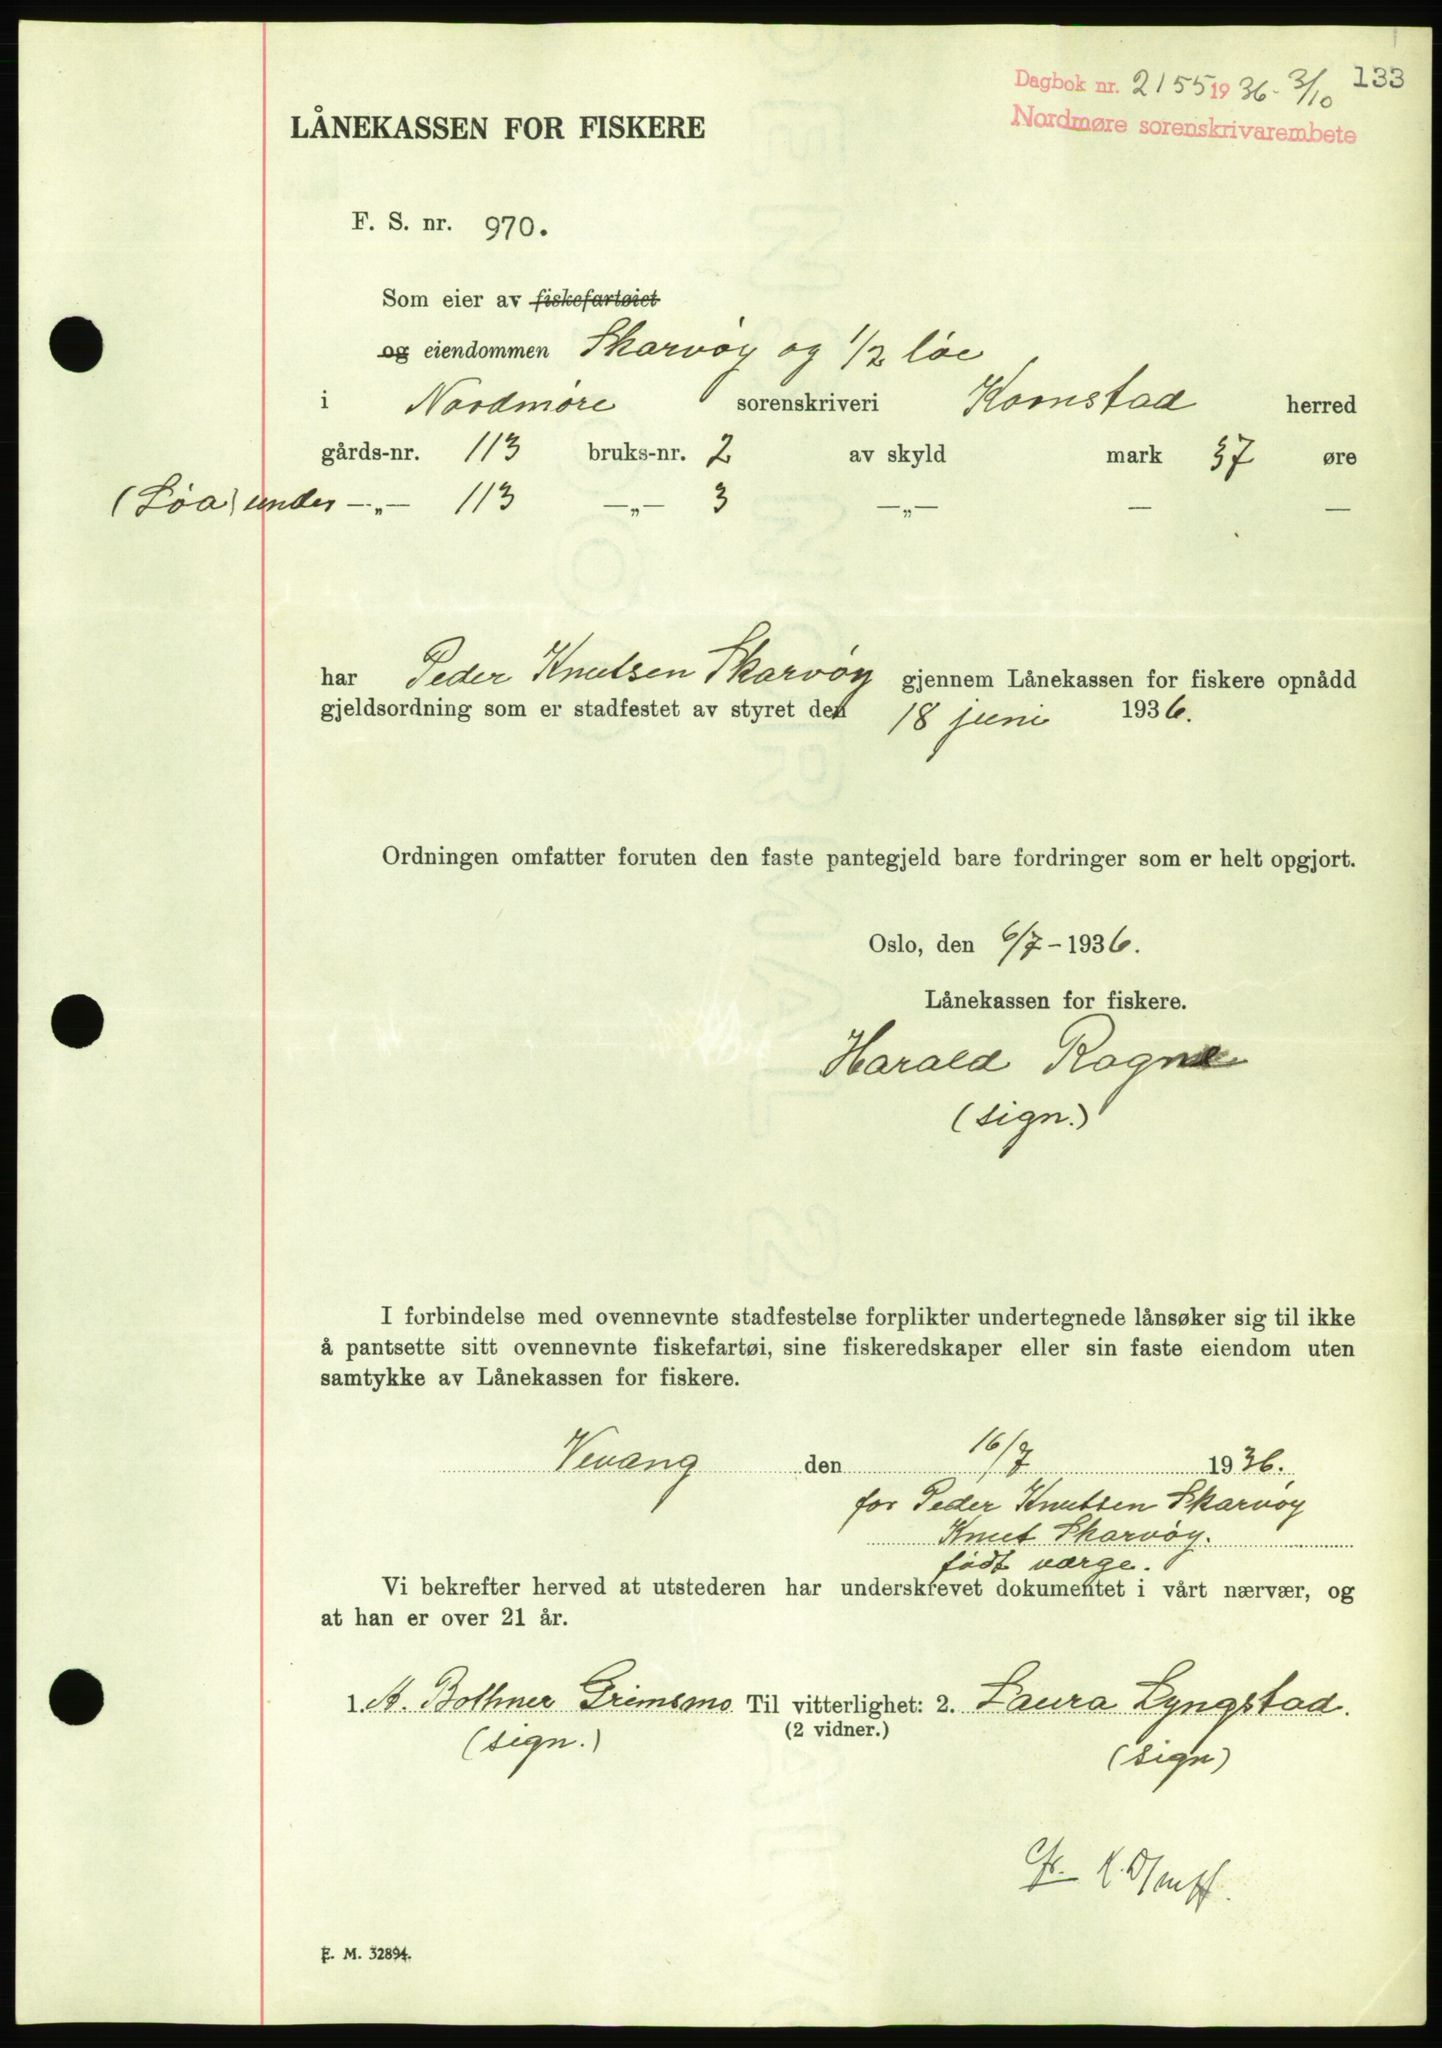 Dagbok nr. 2155 1936 - 3/10 133
Nordmøre sorenskrivarembete
LÅNEKASSEN FOR FISKERE
F. S. nr. 970.
Som eier av fiskefartøiet
og eiendommen Skarvøy og 1/2 løe
i Nordmøre sorenskriveri Kornstad herred
gårds-nr. 113 bruks-nr. 2 av skyld mark 37 øre
(Løa) under —„— 113 —„— 3 —„— — —
har Peder Knutsen Skarvøy gjennem Lånekassen for fiskere opnådd
gjeldsordning som er stadfestet av styret den 18 juni 1936.
Ordningen omfatter foruten den faste pantegjeld bare fordringer som er helt opgjort.
Oslo, den 6/7 - 1936.
Lånekassen for fiskere.
Harald Rogne
(sign.)
I forbindelse med ovennevnte stadfestelse forplikter undertegnede lånsøker sig til ikke
å pantsette sitt ovennevnte fiskefartøi, sine fiskeredskaper eller sin faste eiendom uten
samtykke av Lånekassen for fiskere.
Vevang den 16/7 1936.
for Peder Knutsen Skarvøy
Knut Skarvøy.
født værge.
Vi bekrefter herved at utstederen har underskrevet dokumentet i vårt nærvær, og
at han er over 21 år.
1. A. Bothner Grimsmo Til vitterlighet: 2. Laura Lyngstad.
(sign.) (2 vidner.) (sign)
E. M. 32894.